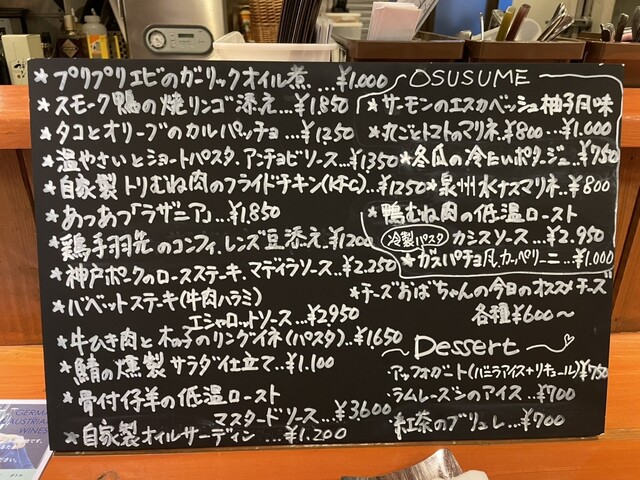 ★プリプリエビのガーリックオイル煮...¥1.000
★スモーク鴨の焼リンゴ添え...¥1.850
★タコとオリーブのカルパッチョ...¥1250
★温やさいとショートパスタ.アンチョビソース...¥1350
★自家製トリむね肉のフライドチキン(KFC)...¥1250
★あっあっ「ラザニア」...¥1.850
★鶏手羽先のコンフィ.レンズ豆添え.¥1200
★神戸ポークのロースステキ.マディラソース...¥2.250
★バベットステキ(牛肉ハラミ)
エシャロットソース...¥2950
★牛ひき肉と木の子のリングイネ(パスタ).¥1650
★鯖の燻製サラダ仕立て...¥1.100
★骨付仔羊の低温ロースト
マスタードソース...¥3600
★自家製オイルサーディン...¥1.200
OSUSUME
★サーモンのエスカベッシュ柚子風味
...¥1.000
★丸ごとトマトのマリネ.¥800
★冬瓜の冷たいポタージュ.¥750
★泉州水ナスマリネ.¥800
★鴨むね肉の低温ロースト
カシスソース...¥2.950
冷製パスタ
★ガスパチョ風カッペリーニ...¥1.000
★チーズおばちゃんの今日のオススメチーズ
各種¥600〜
〜Dessert〜
・アッフォガート(バニラアイス+リキュール)¥750
・ラムレーズンのアイス...¥700
・紅茶のブリュレ...¥700
GERMAN
AUSTRIAN
WINES